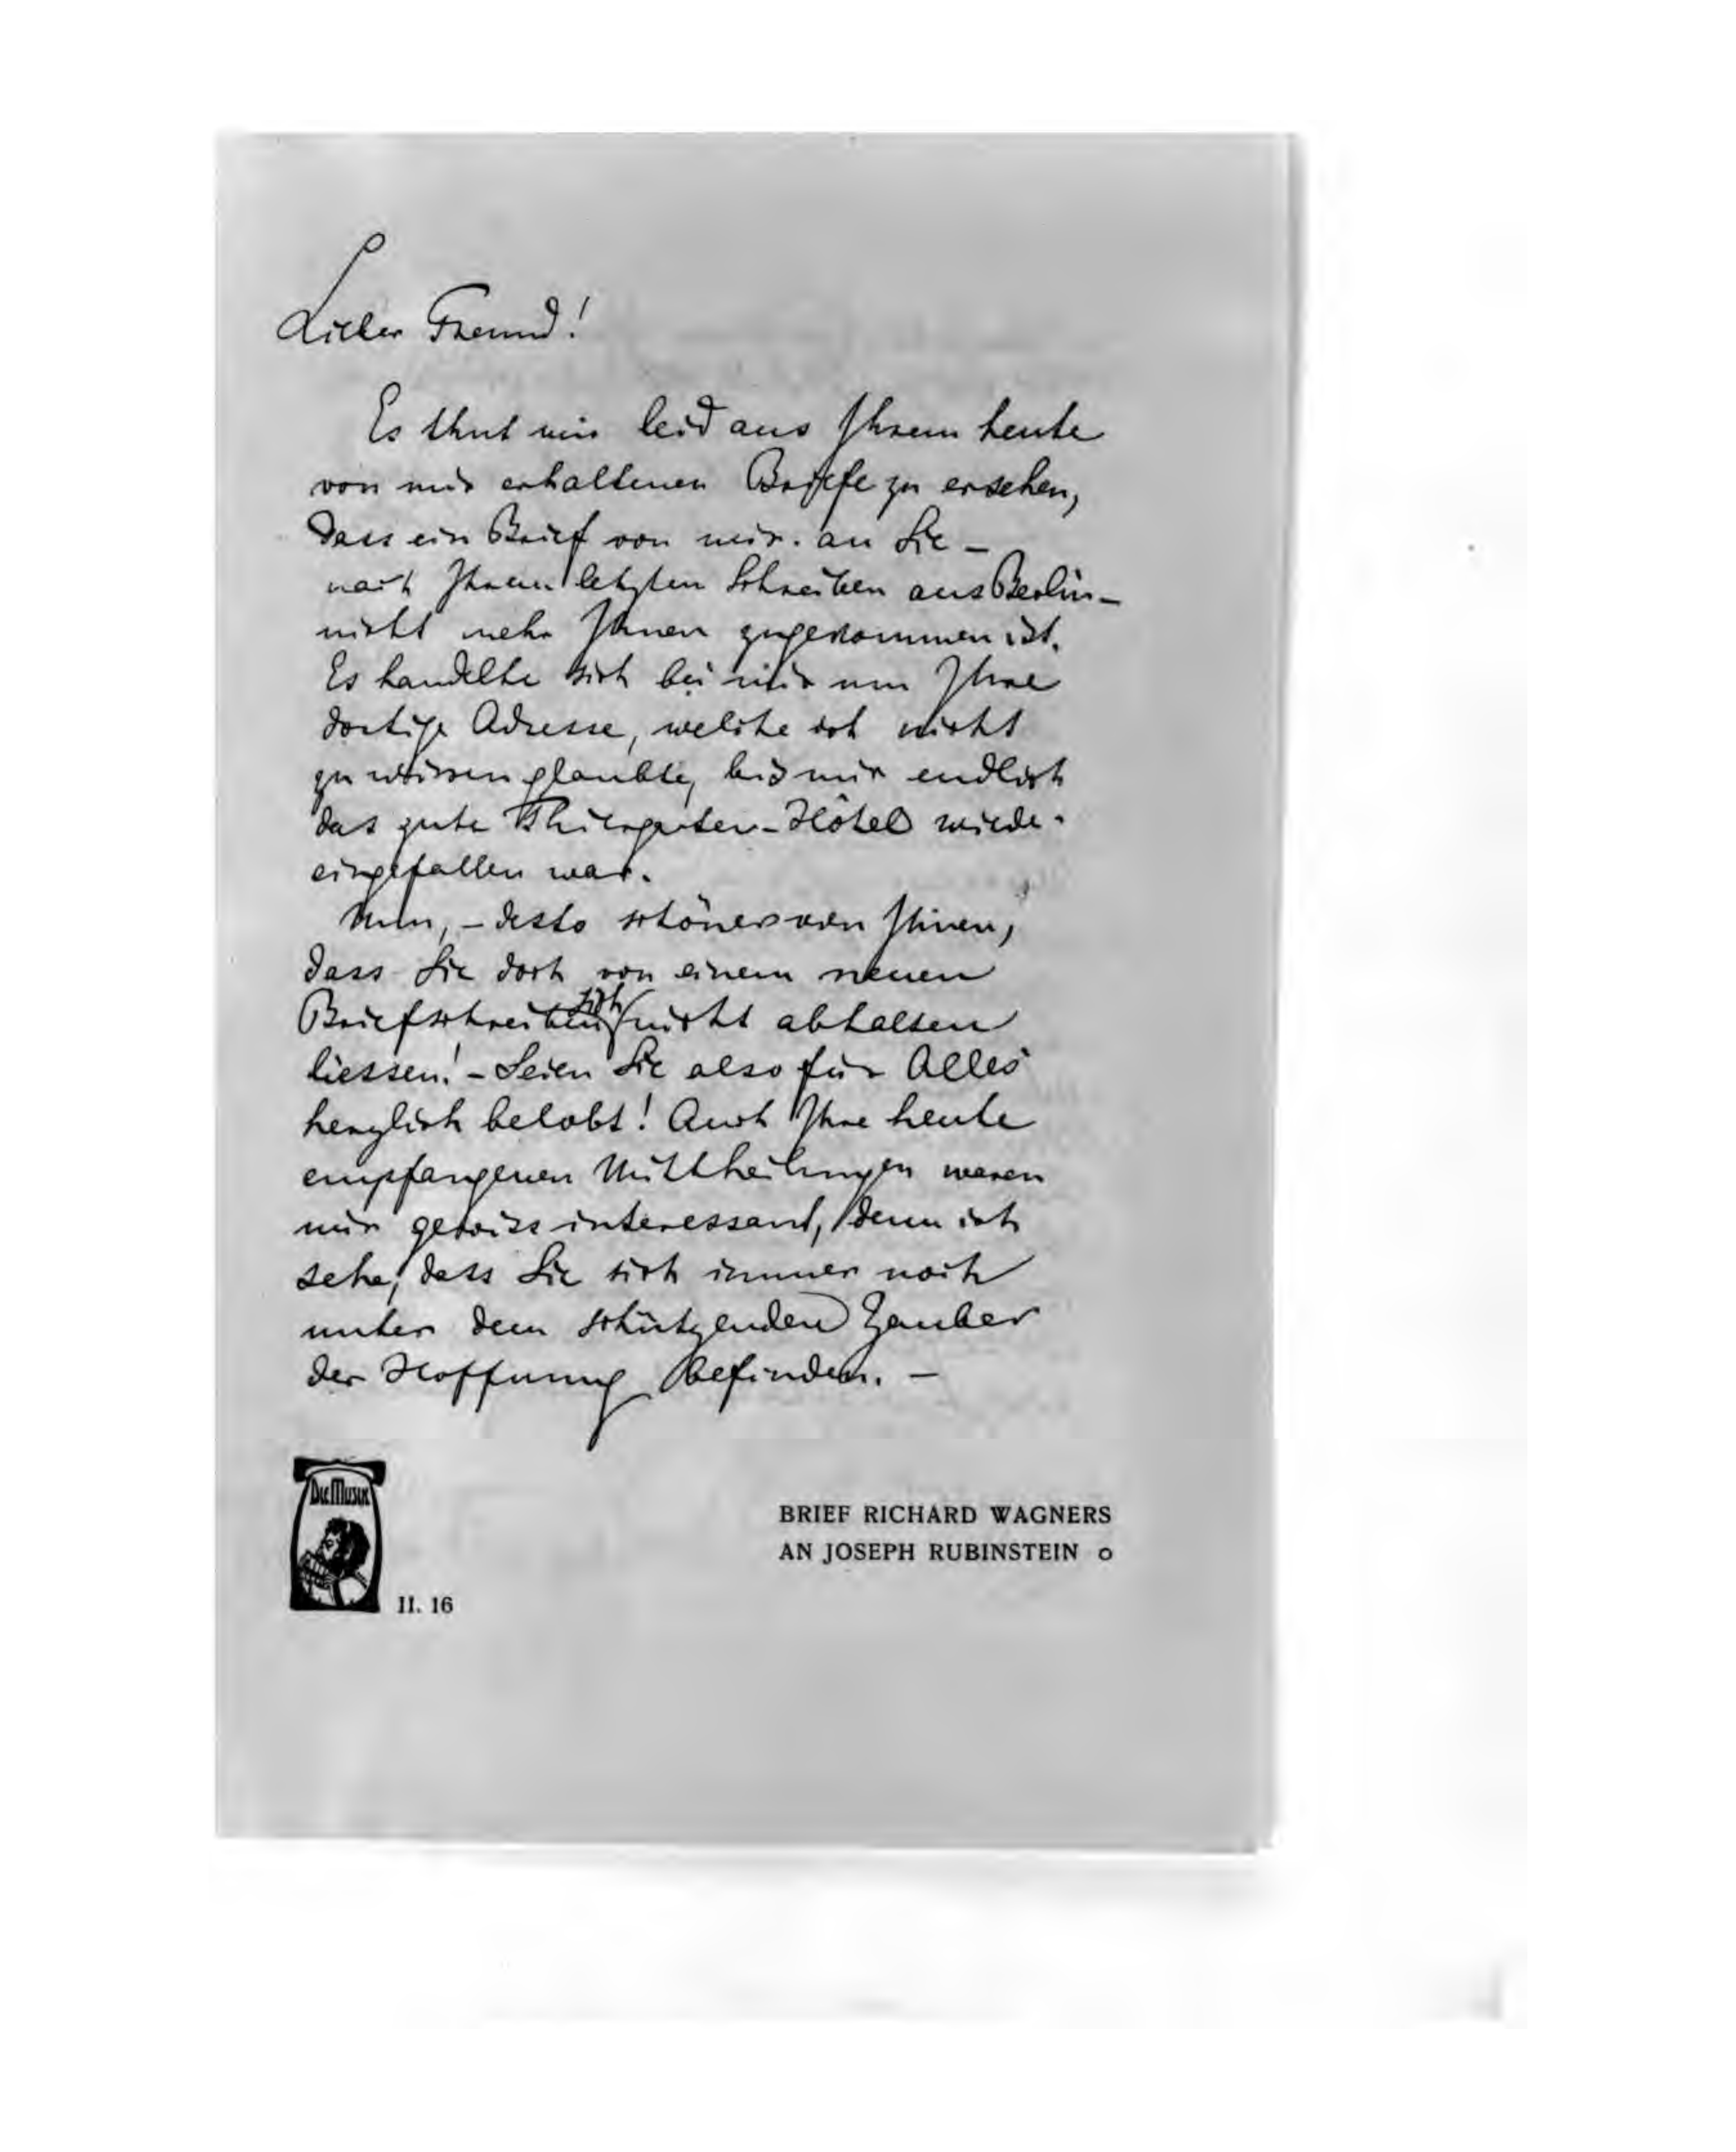 Lieber Freund!
Es thut mir leid aus Ihrem heute
von mir erhaltenen Briefe zu ersehen,
dass ein Brief von mir. an Sie –
nach Ihrem letzten Schreiben aus Berlin –
nicht mehr Ihnen zugekommen ist.
Es handelte sich bei mir um Ihre
dortige Adresse, welche ich nicht
zu wissen glaubte, bis mir endlich
das gute Thiergarten-Hôtel wieder
eingefallen war.
Nun, – desto schöner von Ihnen,
dass Sie doch von einem neuen
Briefschreiben sich nicht abhalten
liessen! – Seien Sie also für Alles
herzlich belobt! Auch Ihre heute
empfangenen Mittheilungen waren
mir gewiss interessant, denn ich
sehe, dass Sie sich immer noch
unter dem schützenden Zauber
der Hoffnung befinden. –
DIE MUSIK
II. 16
BRIEF RICHARD WAGNERS
AN JOSEPH RUBINSTEIN o